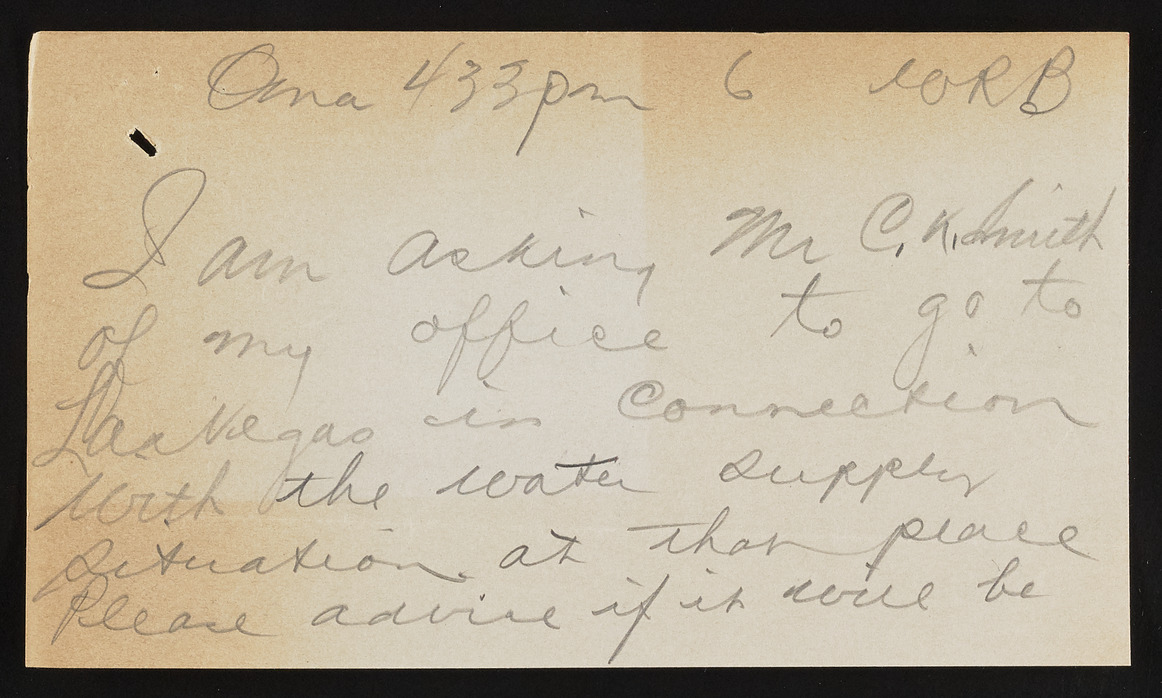 Oma 433pm 6 WRB
I am asking Mr C. K. Smith
of my office to go to
Las Vegas in connection
with the water supply
situation at that place
Please advise if it will be